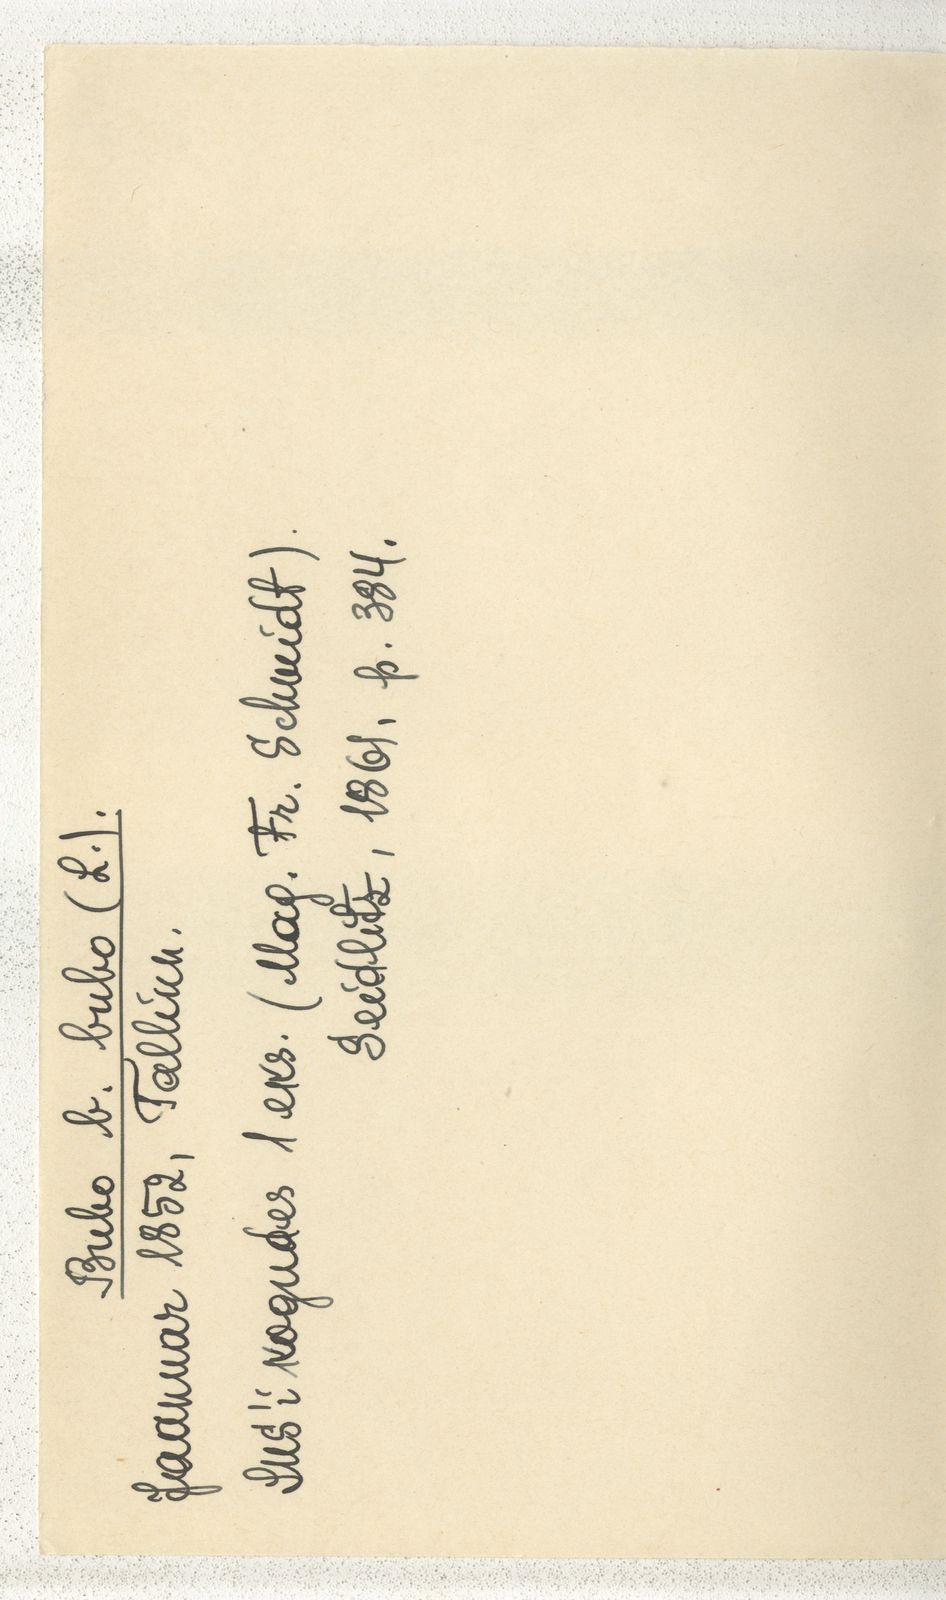 Bubo b. bubo (L.).
Jaanuar 1852, Tallinn.
LUS'i kogudes 1 eks. (Mag. Fr. Schmidt).
Seidlitz, 1861, p. 384.